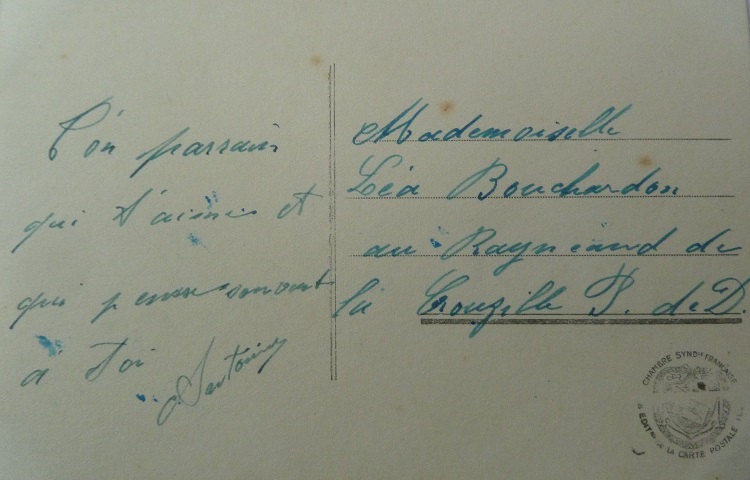 Ton parrain
qui t'aime et
qui pense souvent
à toi
Mademoiselle
Léa Bouchardon
au Raynaud de
la Crouzille P. de D.
CHAMBRE SYND FRANÇAISE
EDIT DE LA CARTE POSTALE